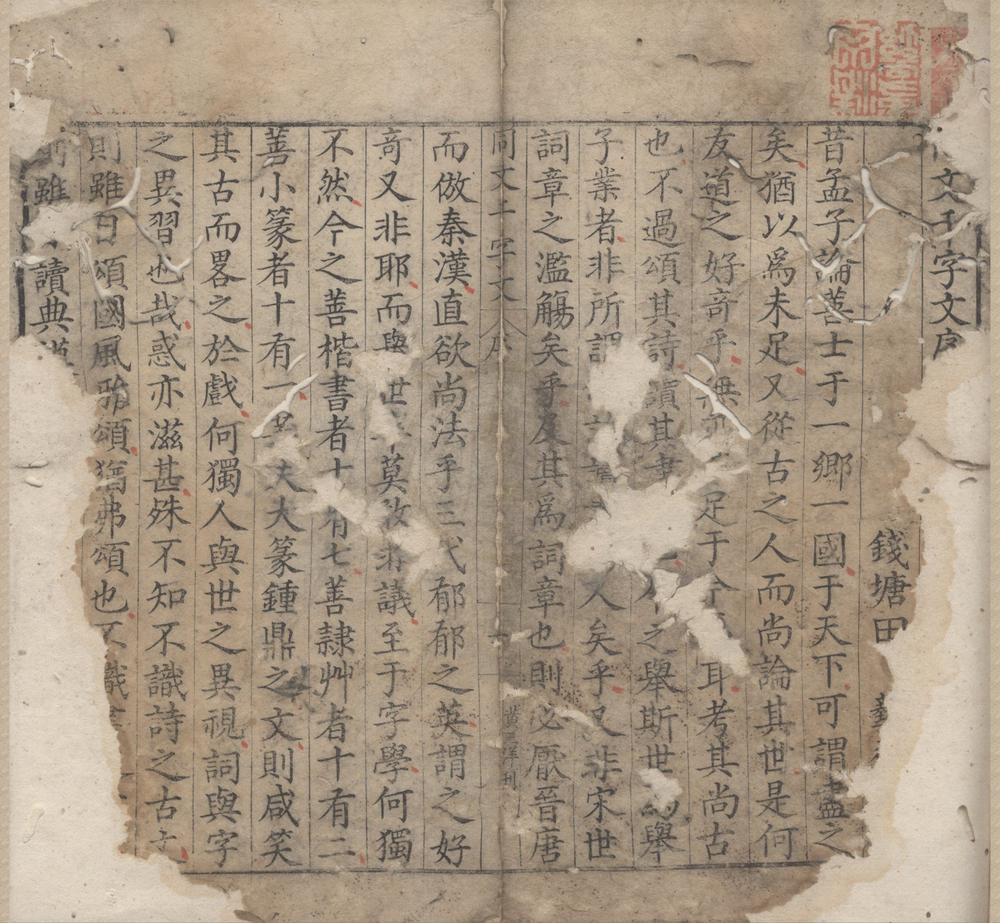 文千字文序
錢塘田
昔孟子論善士于一鄉一國于天下可謂盡之
矣猶以爲未足又從古之人而尚論其世是何
友道之好竒乎無足于今耳考其尚古
也不過頌其詩讀其之舉斯世的舉
子業者非所謂人矣乎又非宋世
詞章之濫觴矣乎及其爲詞章也則必厭晉唐
同文千字文序
黃刊
而倣秦漢直欲尚法乎三代郁郁之英謂之好
竒又非耶而與世莫議至于字學何獨
不然今之善楷書者十有七善隷艸者十有二
善小篆者十有一夫大篆鍾鼎之文則咸笑
其古而畧之於戲何獨人與世之異視詞與字
之異習也哉惑亦滋甚殊不知不識詩之古文
則雖日頌國風雅頌猶弗頌也不識
則雖讀典謨